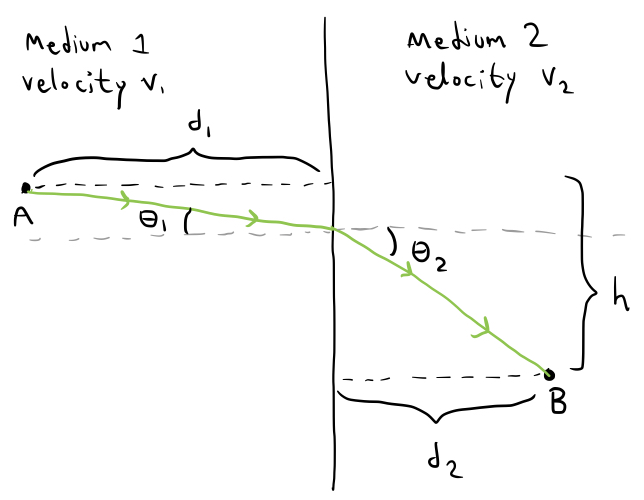 Medium 1
velocity v₁
Medium 2
velocity v₂
d₁
A
θ₁
θ₂
h
B
d₂